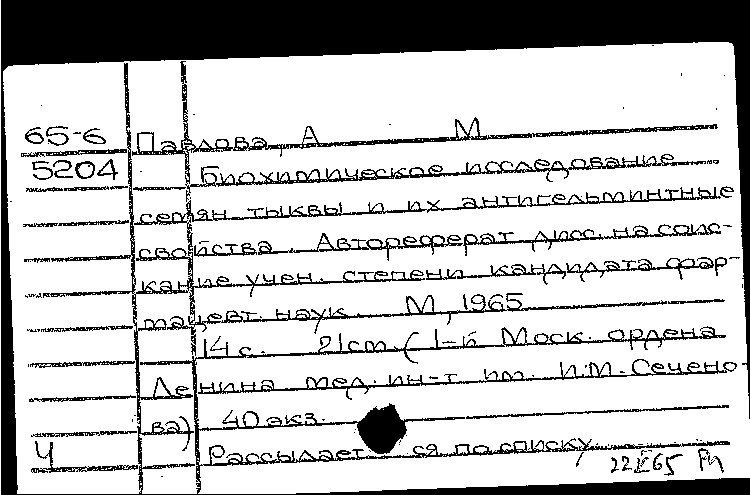 65-6 Павлова, А М
5204 Биохимическое исследование
семян тыквы и их антигельминтные
свойства. Автореферат дисс. на соис-
кание учен. степени кандидата фар-
мацевт. наук. М, 1965
14 с. 21 см. (1-й Моск. ордена
Ленина мед. ин-т им. И.М. Сечено-
ва) 40 экз.
Ч Рассылается по списку
65